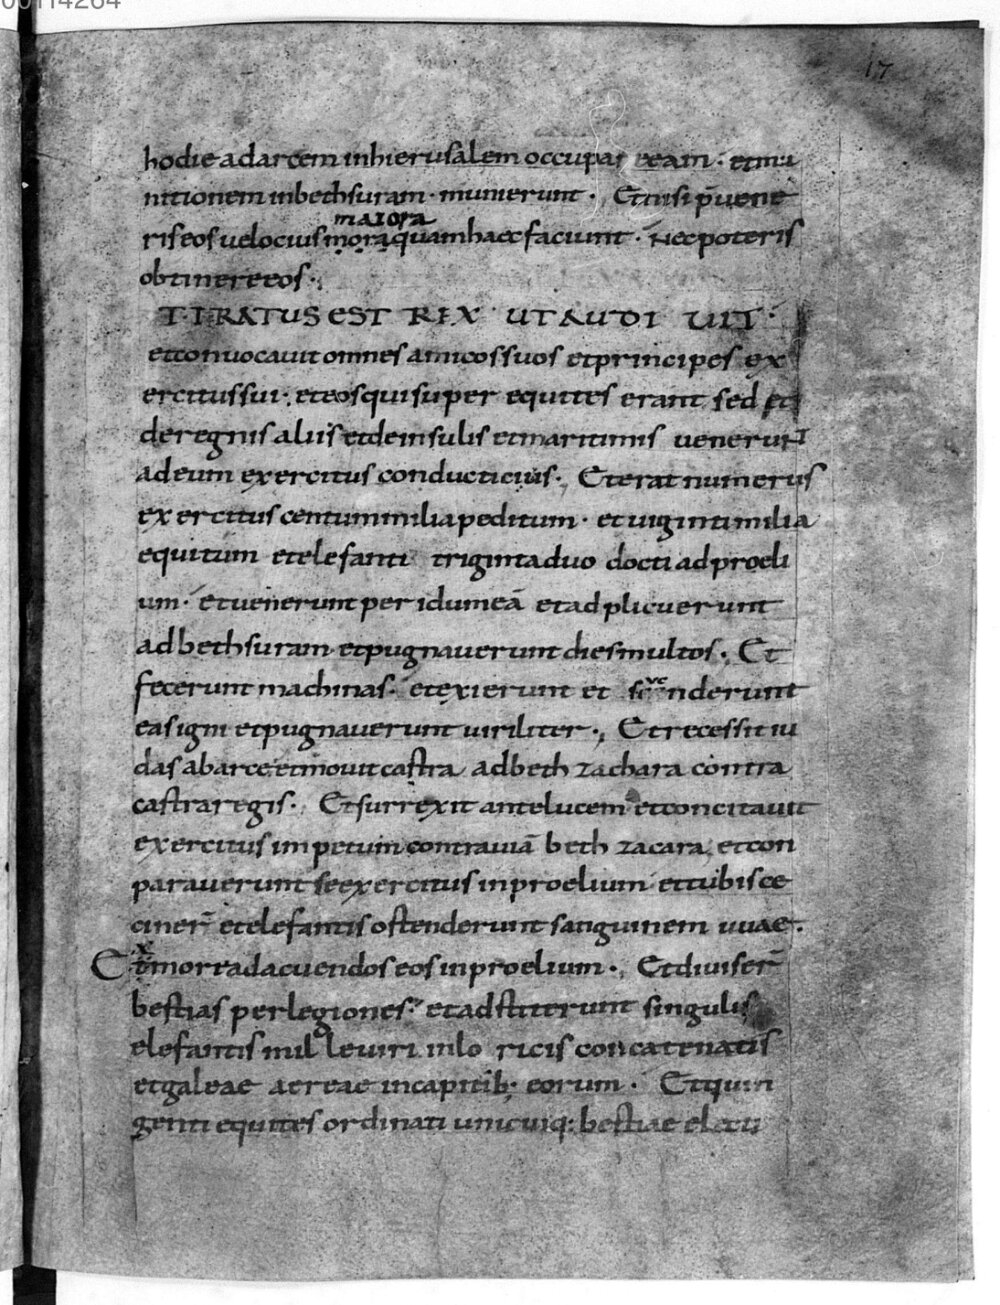 00114264
17
hodie ad arcem in hierusalem occupar eam · et mu
nitionem in bethsuram · munierunt · Et nisi p̄uene
maiora
riseos uelocius mora quam haec faciunt · Nec poteris
obtinere eos ·
T · IRATUS EST REX UT AUDIUIT ·
et conuocauit omnes amicos suos et principes ex
ercitus sui · et eos qui super equites erant sed et
de regnis aliis et de insulis et maritimis uenerunt
ad eum exercitus conducticius · Et erat numerus
exercitus centum milia peditum · et uiginti milia
equitum et elefanti triginta duo docti ad proeli
um · Et uenerunt per idumeā et adplicuerunt
ad bethsuram et pugnauerunt dies multos · Et
fecerunt machinas · et exierunt et succenderunt
eas igni et pugnauerunt uiriliter · Et recessit iu
das ab arce et mouit castra ad beth zachara contra
castra regis · Et surrexit ante lucem et concitauit
exercitus impetum contra uiā beth zacara et con
parauerunt se exercitus in proelium et tubis ce
ciner̄ et elefantis ostenderunt sanguinem uuae ·
Et mori ad acuendos eos in proelium · Et diuiser̄
bestias per legiones · et adstiterunt singulis
elefantis mille uiri in loricis concatenatis
et galeae aereae in capitib; eorum · Et quin
genti equites ordinati unicuiq: bestiae electi